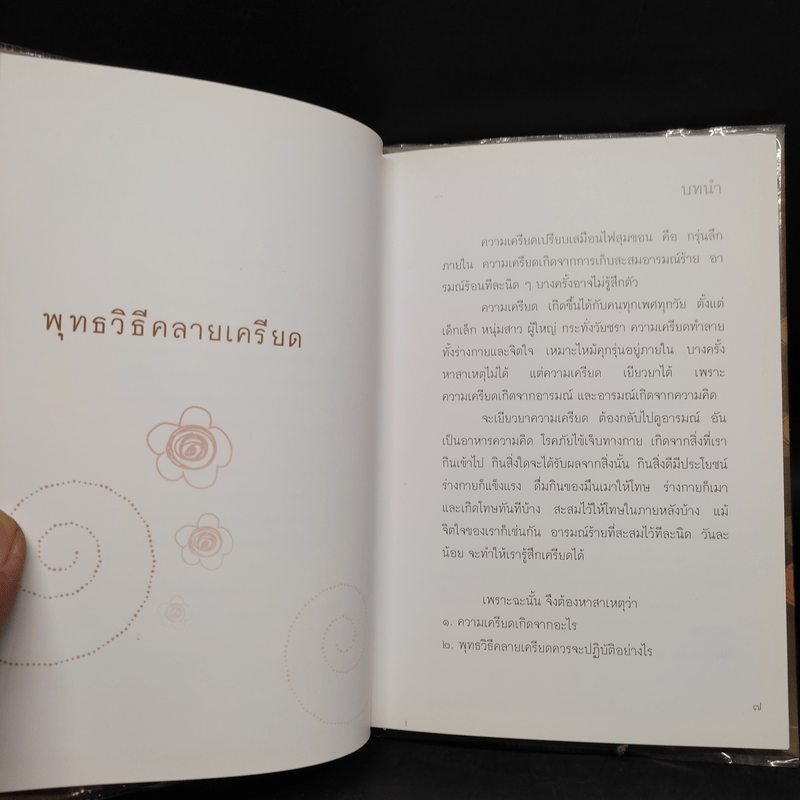 พุทธวิธีคลายเครียด
บทนำ
ความเครียดเปรียบเสมือนไฟสุมขอน คือ กรุ่นลึก
ภายใน ความเครียดเกิดจากการเก็บสะสมอารมณ์ร้าย อา
รมณ์ร้อนทีละนิด ๆ บางครั้งอาจไม่รู้สึกตัว
ความเครียด เกิดขึ้นได้กับคนทุกเพศทุกวัย ตั้งแต่
เด็กเล็ก หนุ่มสาว ผู้ใหญ่ กระทั่งวัยชรา ความเครียดทำลาย
ทั้งร่างกายและจิตใจ เหมาะไหม้คุกรุ่นอยู่ภายใน บางครั้ง
หาสาเหตุไม่ได้ แต่ความเครียด เยียวยาได้ เพราะ
ความเครียดเกิดจากอารมณ์ และอารมณ์เกิดจากความคิด
จะเยียวยาความเครียด ต้องกลับไปดูอารมณ์ อัน
เป็นอาหารความคิด โรคภัยไข้เจ็บทางกาย เกิดจากสิ่งที่เรา
กินเข้าไป กินสิ่งใดจะได้รับผลจากสิ่งนั้น กินสิ่งดีมีประโยชน์
ร่างกายก็แข็งแรง ดื่มกินของมึนเมาให้โทษ ร่างกายก็เมา
และเกิดโทษทันทีบ้าง สะสมไว้ให้โทษในภายหลังบ้าง แม้
จิตใจของเราก็เช่นกัน อารมณ์ร้ายที่สะสมไว้ทีละนิด วันละ
น้อย จะทำให้เรารู้สึกเครียดได้
เพราะฉะนั้น จึงต้องหาสาเหตุว่า
๑. ความเครียดเกิดจากอะไร
๒. พุทธวิธีคลายเครียดควรจะปฏิบัติอย่างไร
๗